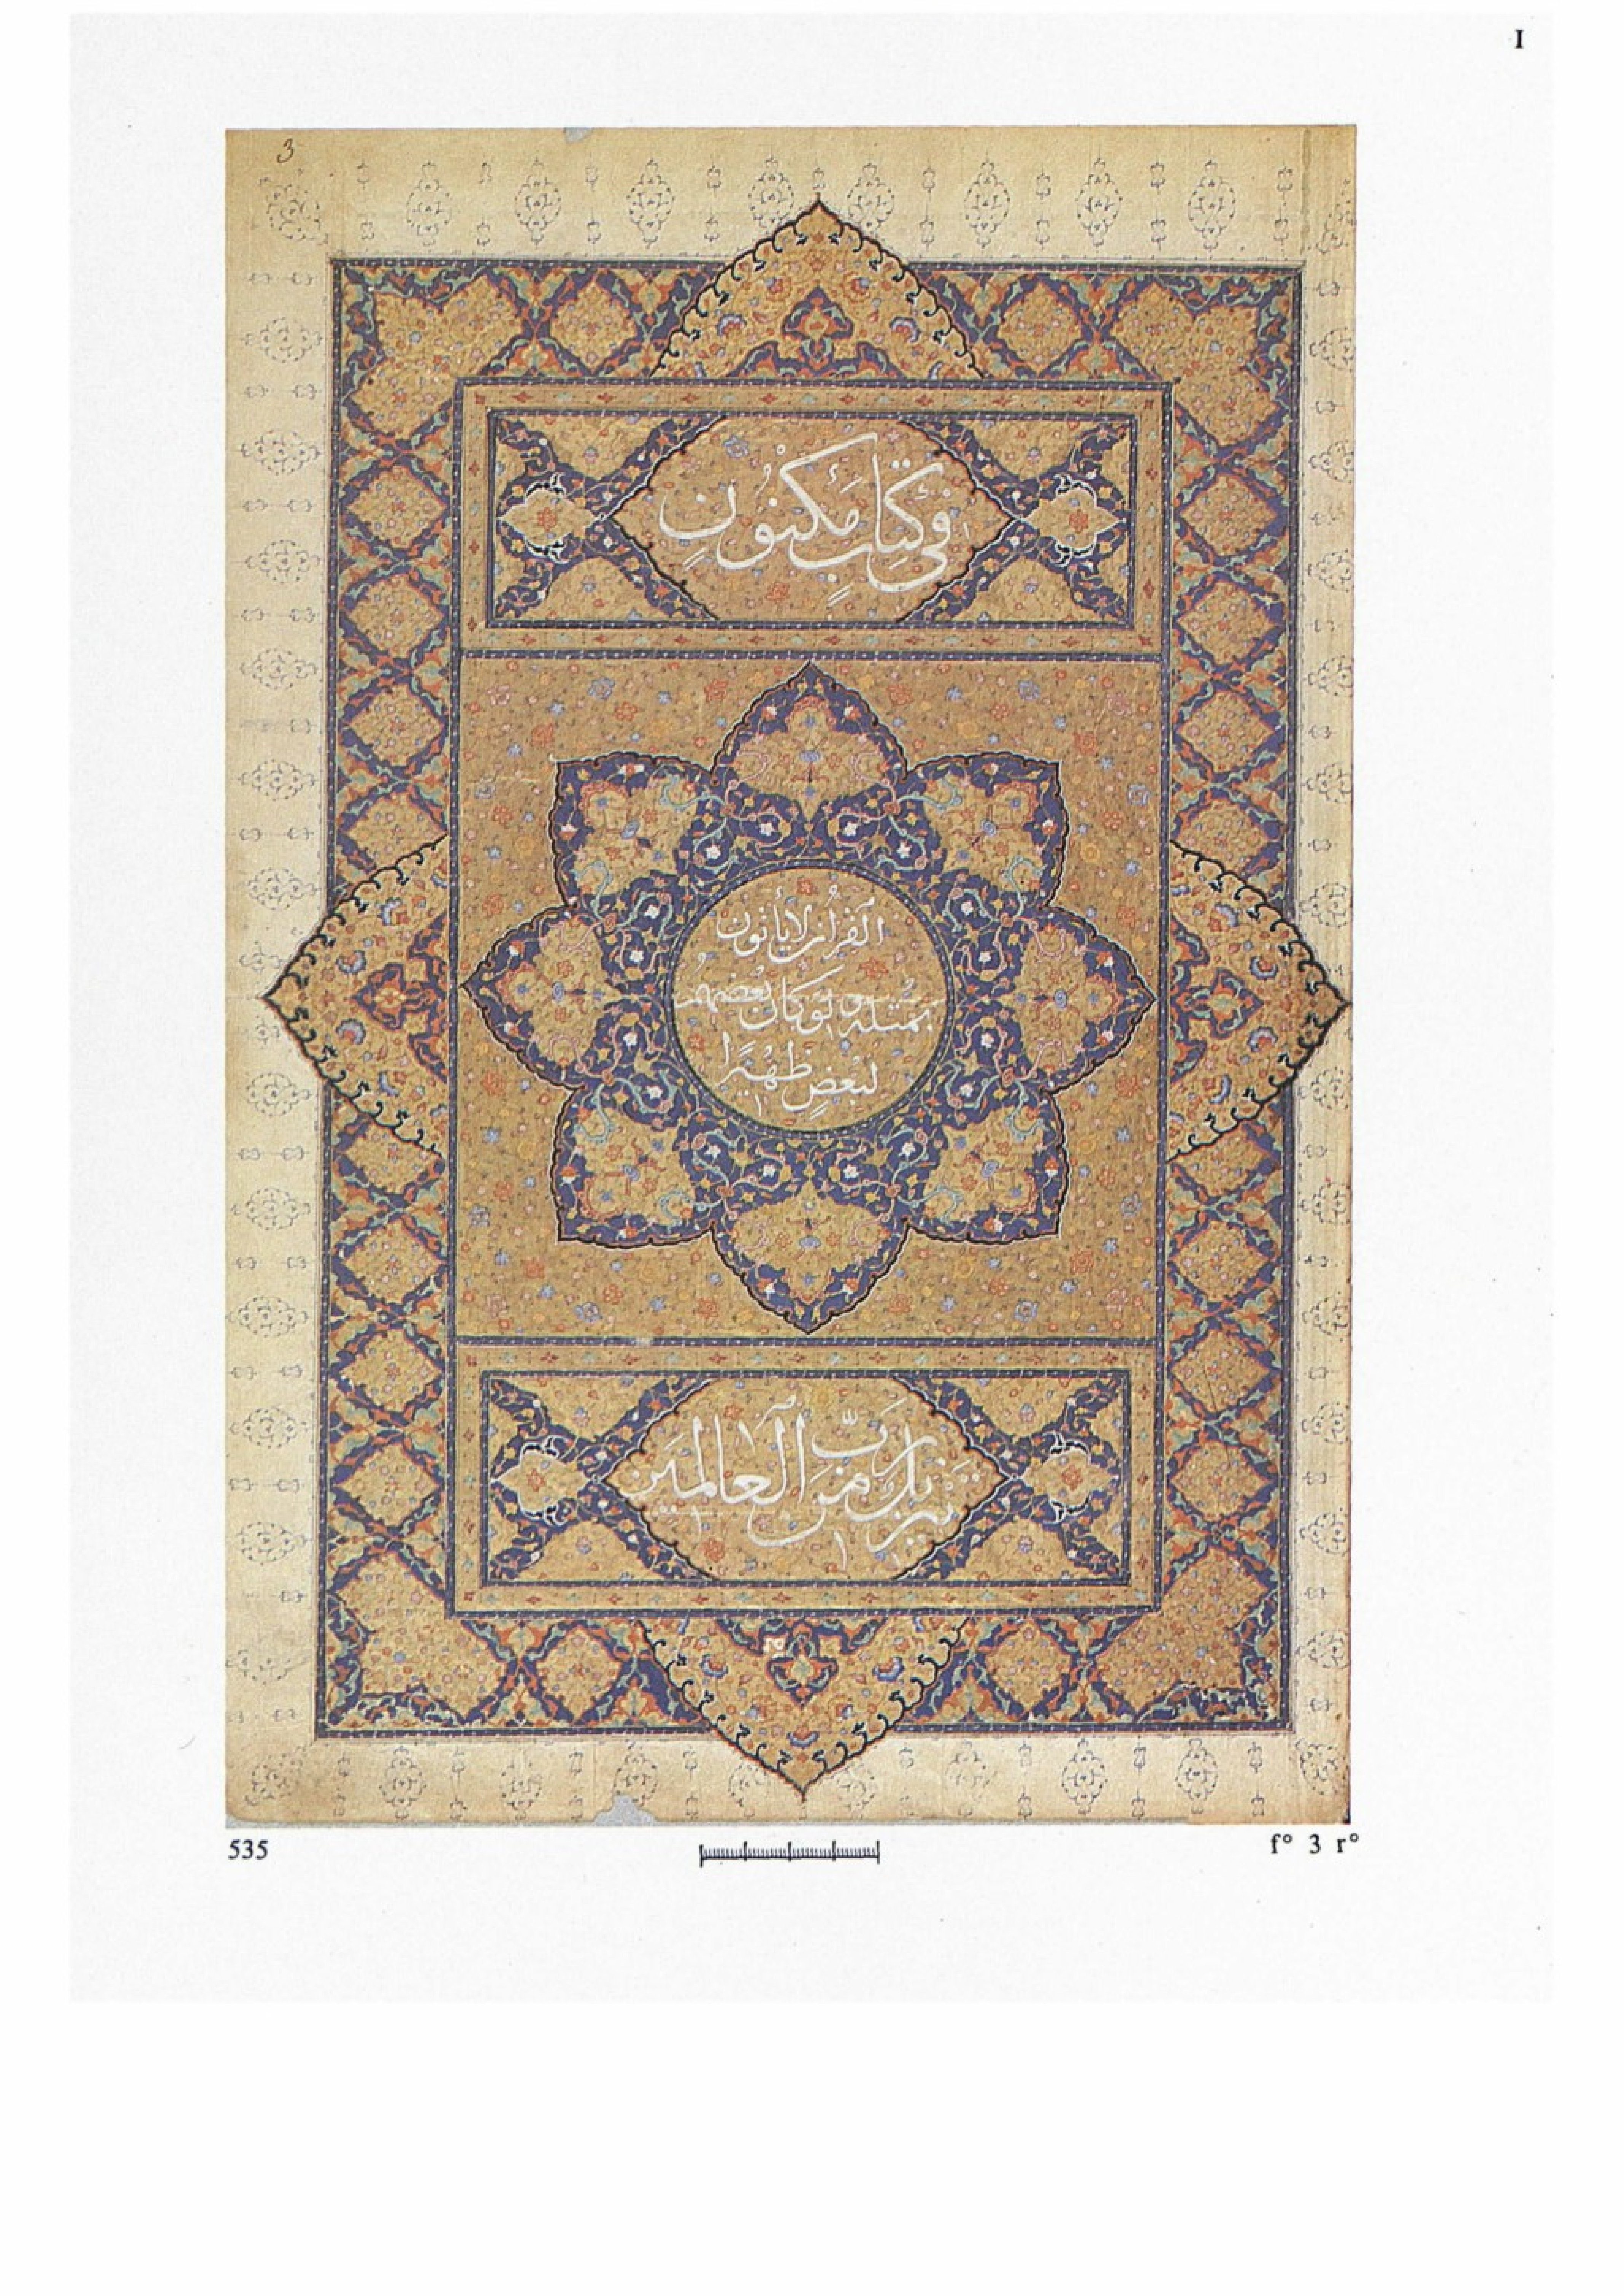 I
3
في كتاب مكنون
القرآن لا يأتون
بمثله ولو كان بعضهم
لبعض ظهيرًا
تنزيل من رب العالمين
535
f° 3 r°